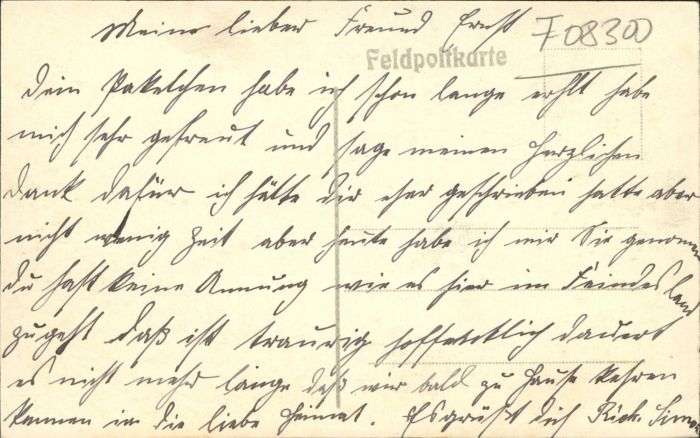 Meine lieber Freund Ernst
F08300
Feldpostkarte
dein Pakelchen habe ich schon lange erhlt habe
mich sehr gefreut und sage meinen herzlichen
dank dafür ich hätte dir eher geschrieben hatte aber
nicht wenig Zeit aber heute habe ich mir Sie genomen
du hast keine Annung wie es hier im Feindesland
zugeht daß ist traurig hoffentlich dauert
es nicht mehr lange daß wir bald zu hause kehren
kannen in die liebe Heimat. Es grüßt dich